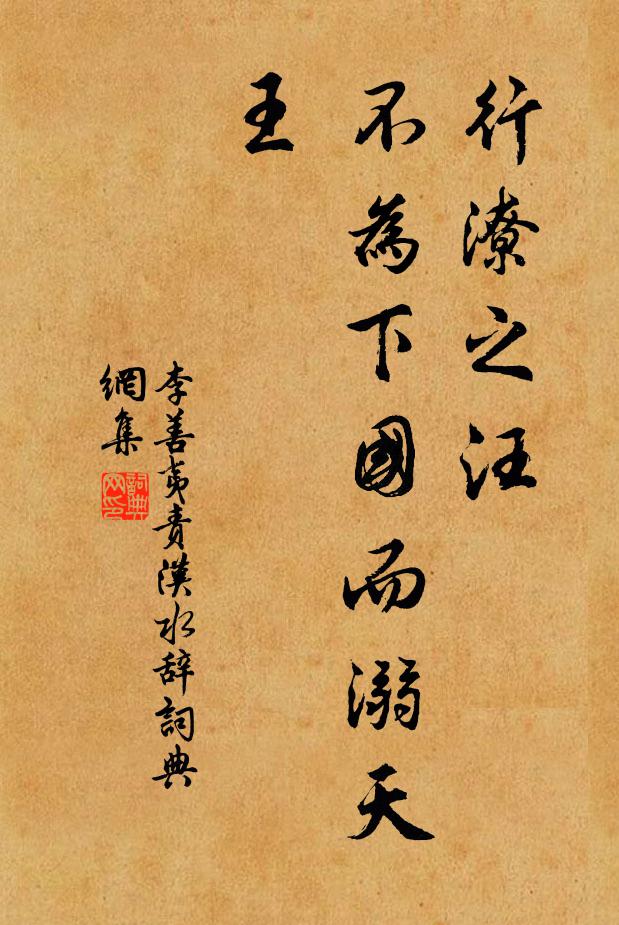 行潦之汪
不為下國而溺天
王
李善夷责漢水辞詞典
網集
詞典
网印